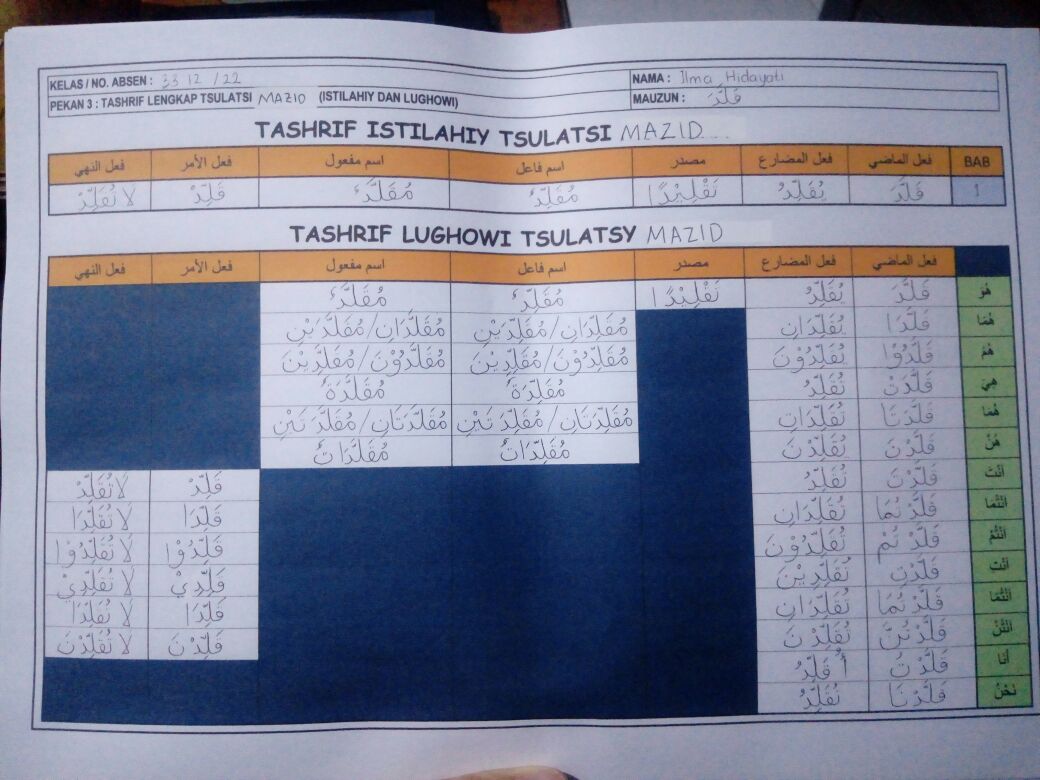 KELAS / NO. ABSEN : 33 12 / 22 NAMA : Ilma Hidayati
PEKAN 3 : TASHRIF LENGKAP TSULATSI MAZID (ISTILAHIY DAN LUGHOWI) MAUZUN : قَلَّدَ
TASHRIF ISTILAHIY TSULATSI MAZID...
BAB فعل الماضي فعل المضارع مصدر اسم فاعل اسم مفعول فعل الأمر فعل النهي
1 قَلَّدَ يُقَلِّدُ تَقْلِيْدًا مُقَلِّدٌ مُقَلَّدٌ قَلِّدْ لَا تُقَلِّدْ
TASHRIF LUGHOWI TSULATSY MAZID
فعل الماضي فعل المضارع مصدر اسم فاعل اسم مفعول فعل الأمر فعل النهي
هُوَ قَلَّدَ يُقَلِّدُ تَقْلِيْدًا مُقَلِّدٌ مُقَلَّدٌ
هُمَا قَلَّدَا يُقَلِّدَانِ مُقَلِّدَانِ/مُقَلِّدَيْنِ مُقَلَّدَانِ/مُقَلَّدَيْنِ
هُمْ قَلَّدُوْا يُقَلِّدُوْنَ مُقَلِّدُوْنَ/مُقَلِّدِيْنَ مُقَلَّدُوْنَ/مُقَلَّدِيْنَ
هِيَ قَلَّدَتْ تُقَلِّدُ مُقَلِّدَةٌ مُقَلَّدَةٌ
هُمَا قَلَّدَتَا تُقَلِّدَانِ مُقَلِّدَتَانِ/مُقَلِّدَتَيْنِ مُقَلَّدَتَانِ/مُقَلَّدَتَيْنِ
هُنَّ قَلَّدْنَ يُقَلِّدْنَ مُقَلِّدَاتٌ مُقَلَّدَاتٌ
أَنْتَ قَلَّدْتَ تُقَلِّدُ قَلِّدْ لَا تُقَلِّدْ
أَنْتُمَا قَلَّدْتُمَا تُقَلِّدَانِ قَلِّدَا لَا تُقَلِّدَا
أَنْتُمْ قَلَّدْتُمْ تُقَلِّدُوْنَ قَلِّدُوْا لَا تُقَلِّدُوْا
أَنْتِ قَلَّدْتِ تُقَلِّدِيْنَ قَلِّدِيْ لَا تُقَلِّدِيْ
أَنْتُمَا قَلَّدْتُمَا تُقَلِّدَانِ قَلِّدَا لَا تُقَلِّدَا
أَنْتُنَّ قَلَّدْتُنَّ تُقَلِّدْنَ قَلِّدْنَ لَا تُقَلِّدْنَ
أَنَا قَلَّدْتُ أُقَلِّدُ
نَحْنُ قَلَّدْنَا نُقَلِّدُ